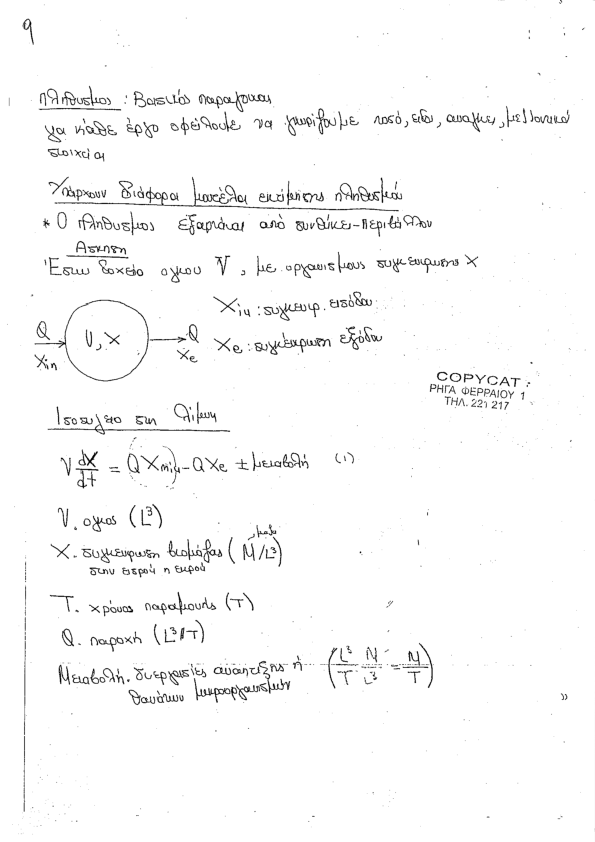 9
Πληθυσμος : Βασικός παραγοντας
για κάθε έργο οφείλουμε να γνωρίζουμε ποσό, είδη, αναγκες, μελλοντικά
στοιχεία
Υπάρχουν διάφορα μοντέλα εκτίμησης πληθυσμού
* Ο πληθυσμος εξαρτάται από συνθήκες-περιβάλλον
Ασκηση
Έστω δοχείο ογκου V, με οργανισμους συγκεντρωσης X
Xin : συγκεντρ. εισόδου
Q
Xin
V, X
Q
Xe
Xe : συγκέντρωση εξόδου
COPYCAT
ΡΗΓΑ ΦΕΡΡΑΙΟΥ 1
ΤΗΛ. 221 217
Ισοζυγιο στη λίμνη
V dX/dt = Q Xin - Q Xe ± μεταβολή (1)
V. ογκος (L³)
X. συγκεντρωση βιομάζας (M/L³)
στην εισροή ή εκροή
T. χρόνος παραμονής (T)
Q. παροχή (L³/T)
Μεταβολή. διεργασίες αναπτυξης ή (L³/T M/L³ = M/T)
θανάτων μικροοργανισμών